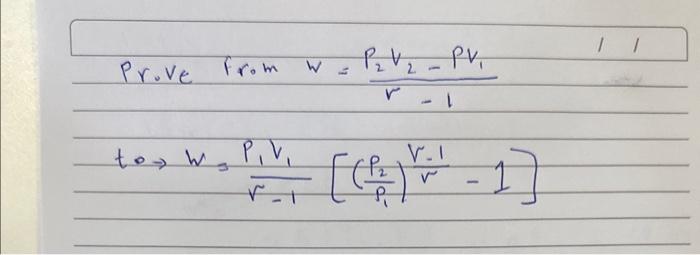 / /
Prove from W = P₂V₂ - PV₁ / r - 1
to → W = P₁V₁ / r - 1 [(P₂/P₁)^(r-1/r) - 1]